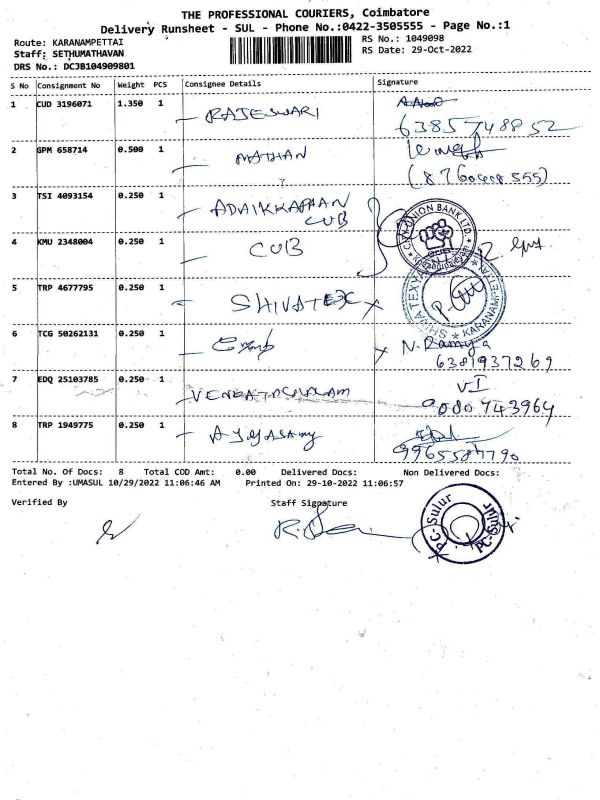 THE PROFESSIONAL COURIERS, Coimbatore
Delivery Runsheet - SUL - Phone No.:0422-3505555 - Page No.:1
Route: KARANAMPETTAI
RS No.: 1049098
Staff: SETHUMATHAVAN
RS Date: 29-Oct-2022
DRS No.: DCJB104909801
S No Consignment No Weight PCS Consignee Details Signature
1 CUD 3196071 1.350 1 RAJESWARI
6385748852
2 GPM 658714 0.500 1 MATHAN
3 TSI 4093154 0.250 1 ADAIKKAPPAN
CUB
CITY UNION BANK LTD.
4 KMU 2348004 0.250 1 CUB
5 TRP 4677795 0.250 1 SHIVATEX
KARANAMPETTAI
6 TCG 50262131 0.250 1 N. Ramya
6381937269
7 EDQ 25103785 0.250 1 VENGATACHALAM VI
9080743964
8 TRP 1949775 0.250 1 Ayyasamy
9965587790
Total No. Of Docs: 8 Total COD Amt: 0.00 Delivered Docs: Non Delivered Docs:
Entered By :UMASUL 10/29/2022 11:06:46 AM Printed On: 29-10-2022 11:06:57
Verified By Staff Signature
PC-Sulur
PC-Sulur